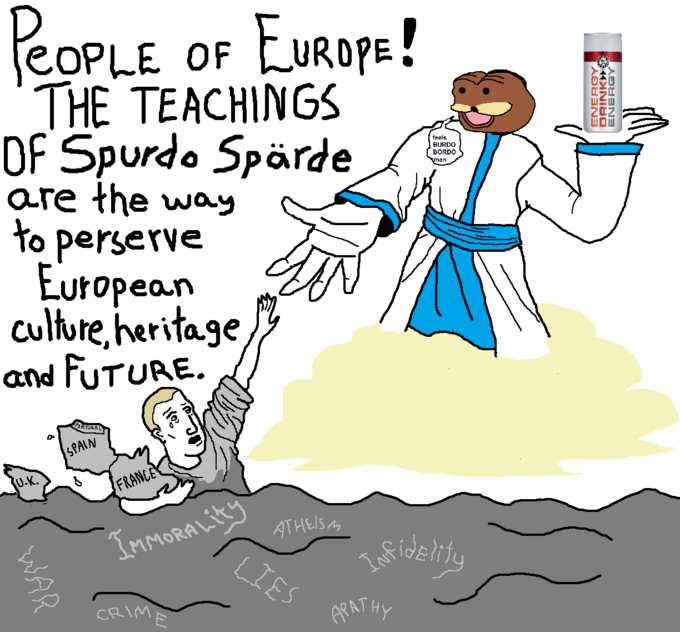 PEOPLE OF EUROPE!
THE TEACHINGS
OF Spurdo Spärde
are the way
to perserve
European
culture, heritage
and FUTURE.
feels
BURDO
BORDO
man
ENERGY
DRINK
ENERGY
PORTUGAL
SPAIN
U.K.
FRANCE
IMMORALITY
ATHEISM
INfidElity
WAR
LIES
CRIME
APATHY